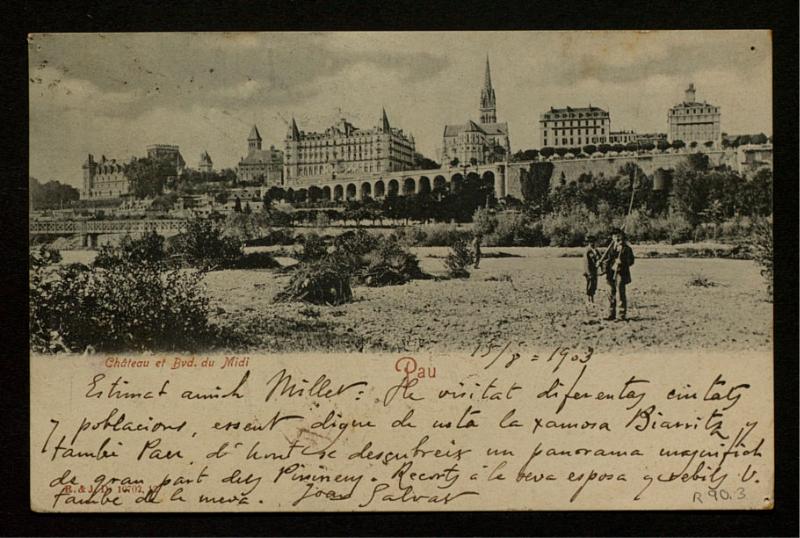 Château et Bvd. du Midi
Pau
15/8 = 1903
Estimat amich Millet: He visitat diferentas ciutats
y poblacions, essent digne de nota la xamosa Biarritz y
també Pau, d'hont se descubreix un panorama magnifich
de gran part dels Pirineus. Recorts á la seva esposa y rebils V.
també de la meva. Joan Salvat
R. & J. D. 10702
R 90.3